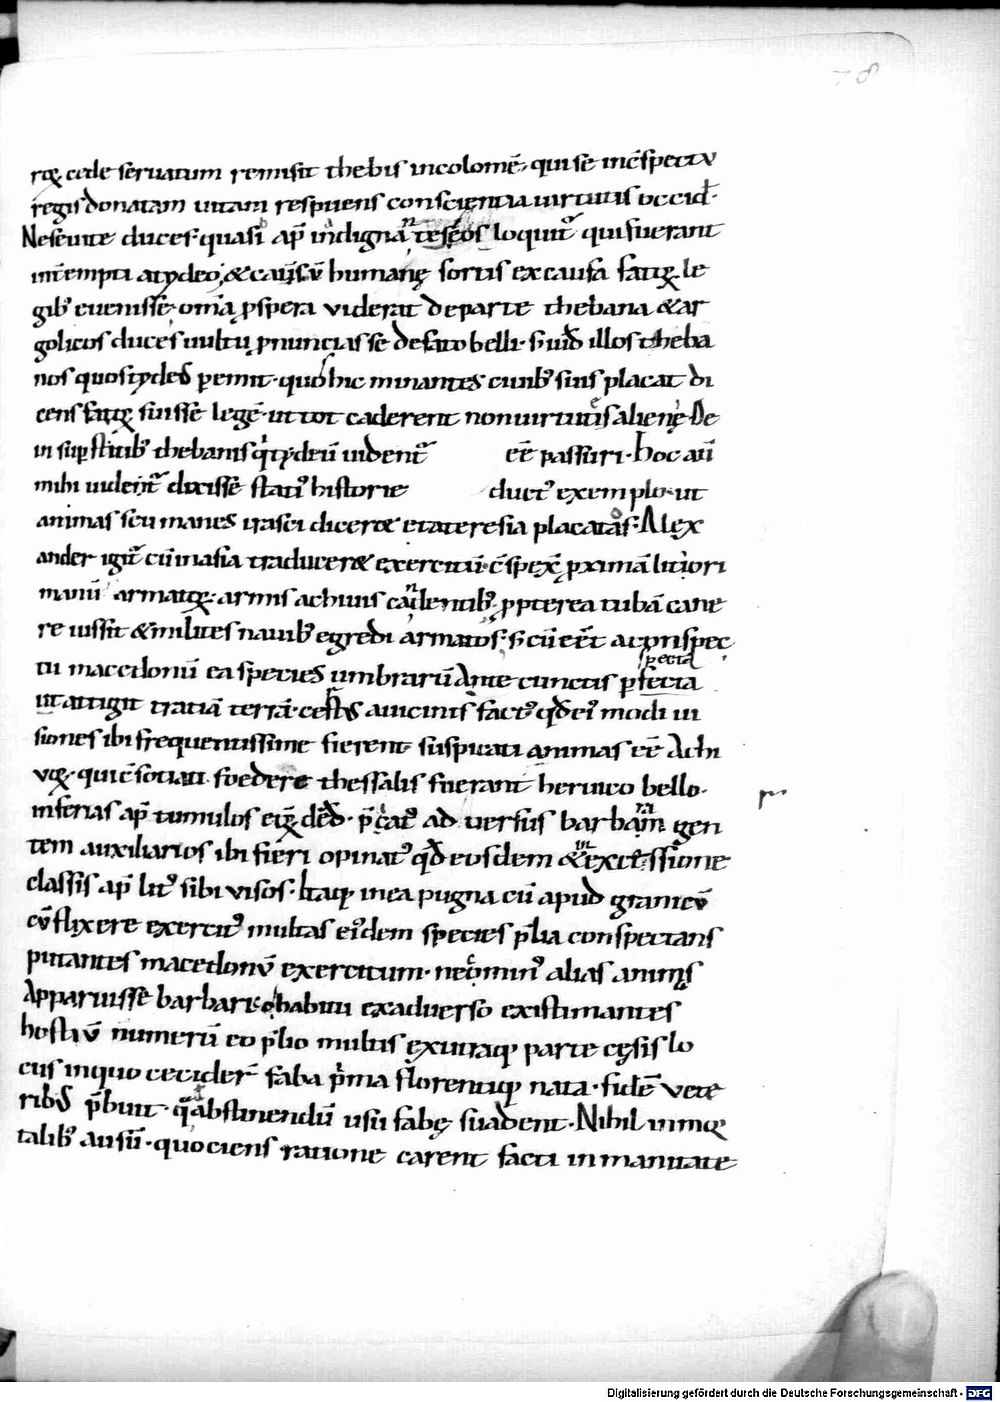 78
rꝫ cede seruatum remisit thebis incolomē, qui se inc̄spectu
regis donatam uitam respuens conscientia uirtutis occid̄.
Neseuite duces. quasi ap̄ indignā loquit᷑ qui fuerant
int̄empti atydeo. & humanę sortis ex causa le
gib᷒ euenisse. om̄a ꝓspera viderat de parte thebana & ar
golicos duces uultu ꝓnuncias se defato belli. illos theba
nos quos tydeus pemit. quob hic minantes cunib᷒ suis placat di
cens fatuꝫ fuisse legē. ut tot caderent non uirtutis alienę. De
in sup̄stitib᷒ thebanis uident᷑ eē passuri. hoc aū
mihi uident᷑ dixisse stati᷒ historie duct᷒ exemplo. ut
animas seu manes irasci dicerꝫ etateresia placatas. Alex
ander igit᷑ cū inasia traducerꝫ exercitū. c̄spex̄ ꝓximā litiori
manū armatoꝝ. armis achiuis cadentib᷒. ꝓpterea tubā cane
re iussit & milites nauib᷒ egredi armatos. s; cū eēt ac conspec
specta
tu macedonū ea species umbrarū. Ante cunctis perfecta
ut attigit tratiā terrā. a uicinis fact᷒ qd ei᷒ modi ui
siones ibi frequentissime fierent suspicati animas eē Achi
uoꝝ. qui c̄sotiati foedere thessalis fuerant heroico bello.
inferias ap̄ tumulos eoꝝ ad uersus barbaram gen
tem auxiliarios ibi fieri opinat᷒ qd eosdem & in excessione
classis ap̄ lit᷒ sibi visos. Itaqꝫ in ea pugna cū apud granicū
cōflixere exercit᷒ multas eidem species p̄lia conspectans
putantes macedonū exercitum. alias animas
Apparuisse barbarico habitu ex aduerso existimantes
hostiū numerū eo p̄lio multis ex utraqꝫ parte cęsis lo
cus in quo cecider̄ faba p̄ma florentiqꝫ nata. fidē vete
ribus p̄buit. abstinendū usu fabę suadent. Nihil inmoꝝ
talib᷒ ausū. quociens ratione carent facti inmanitate
Digitalisierung gefördert durch die Deutsche Forschungsgemeinschaft - DFG